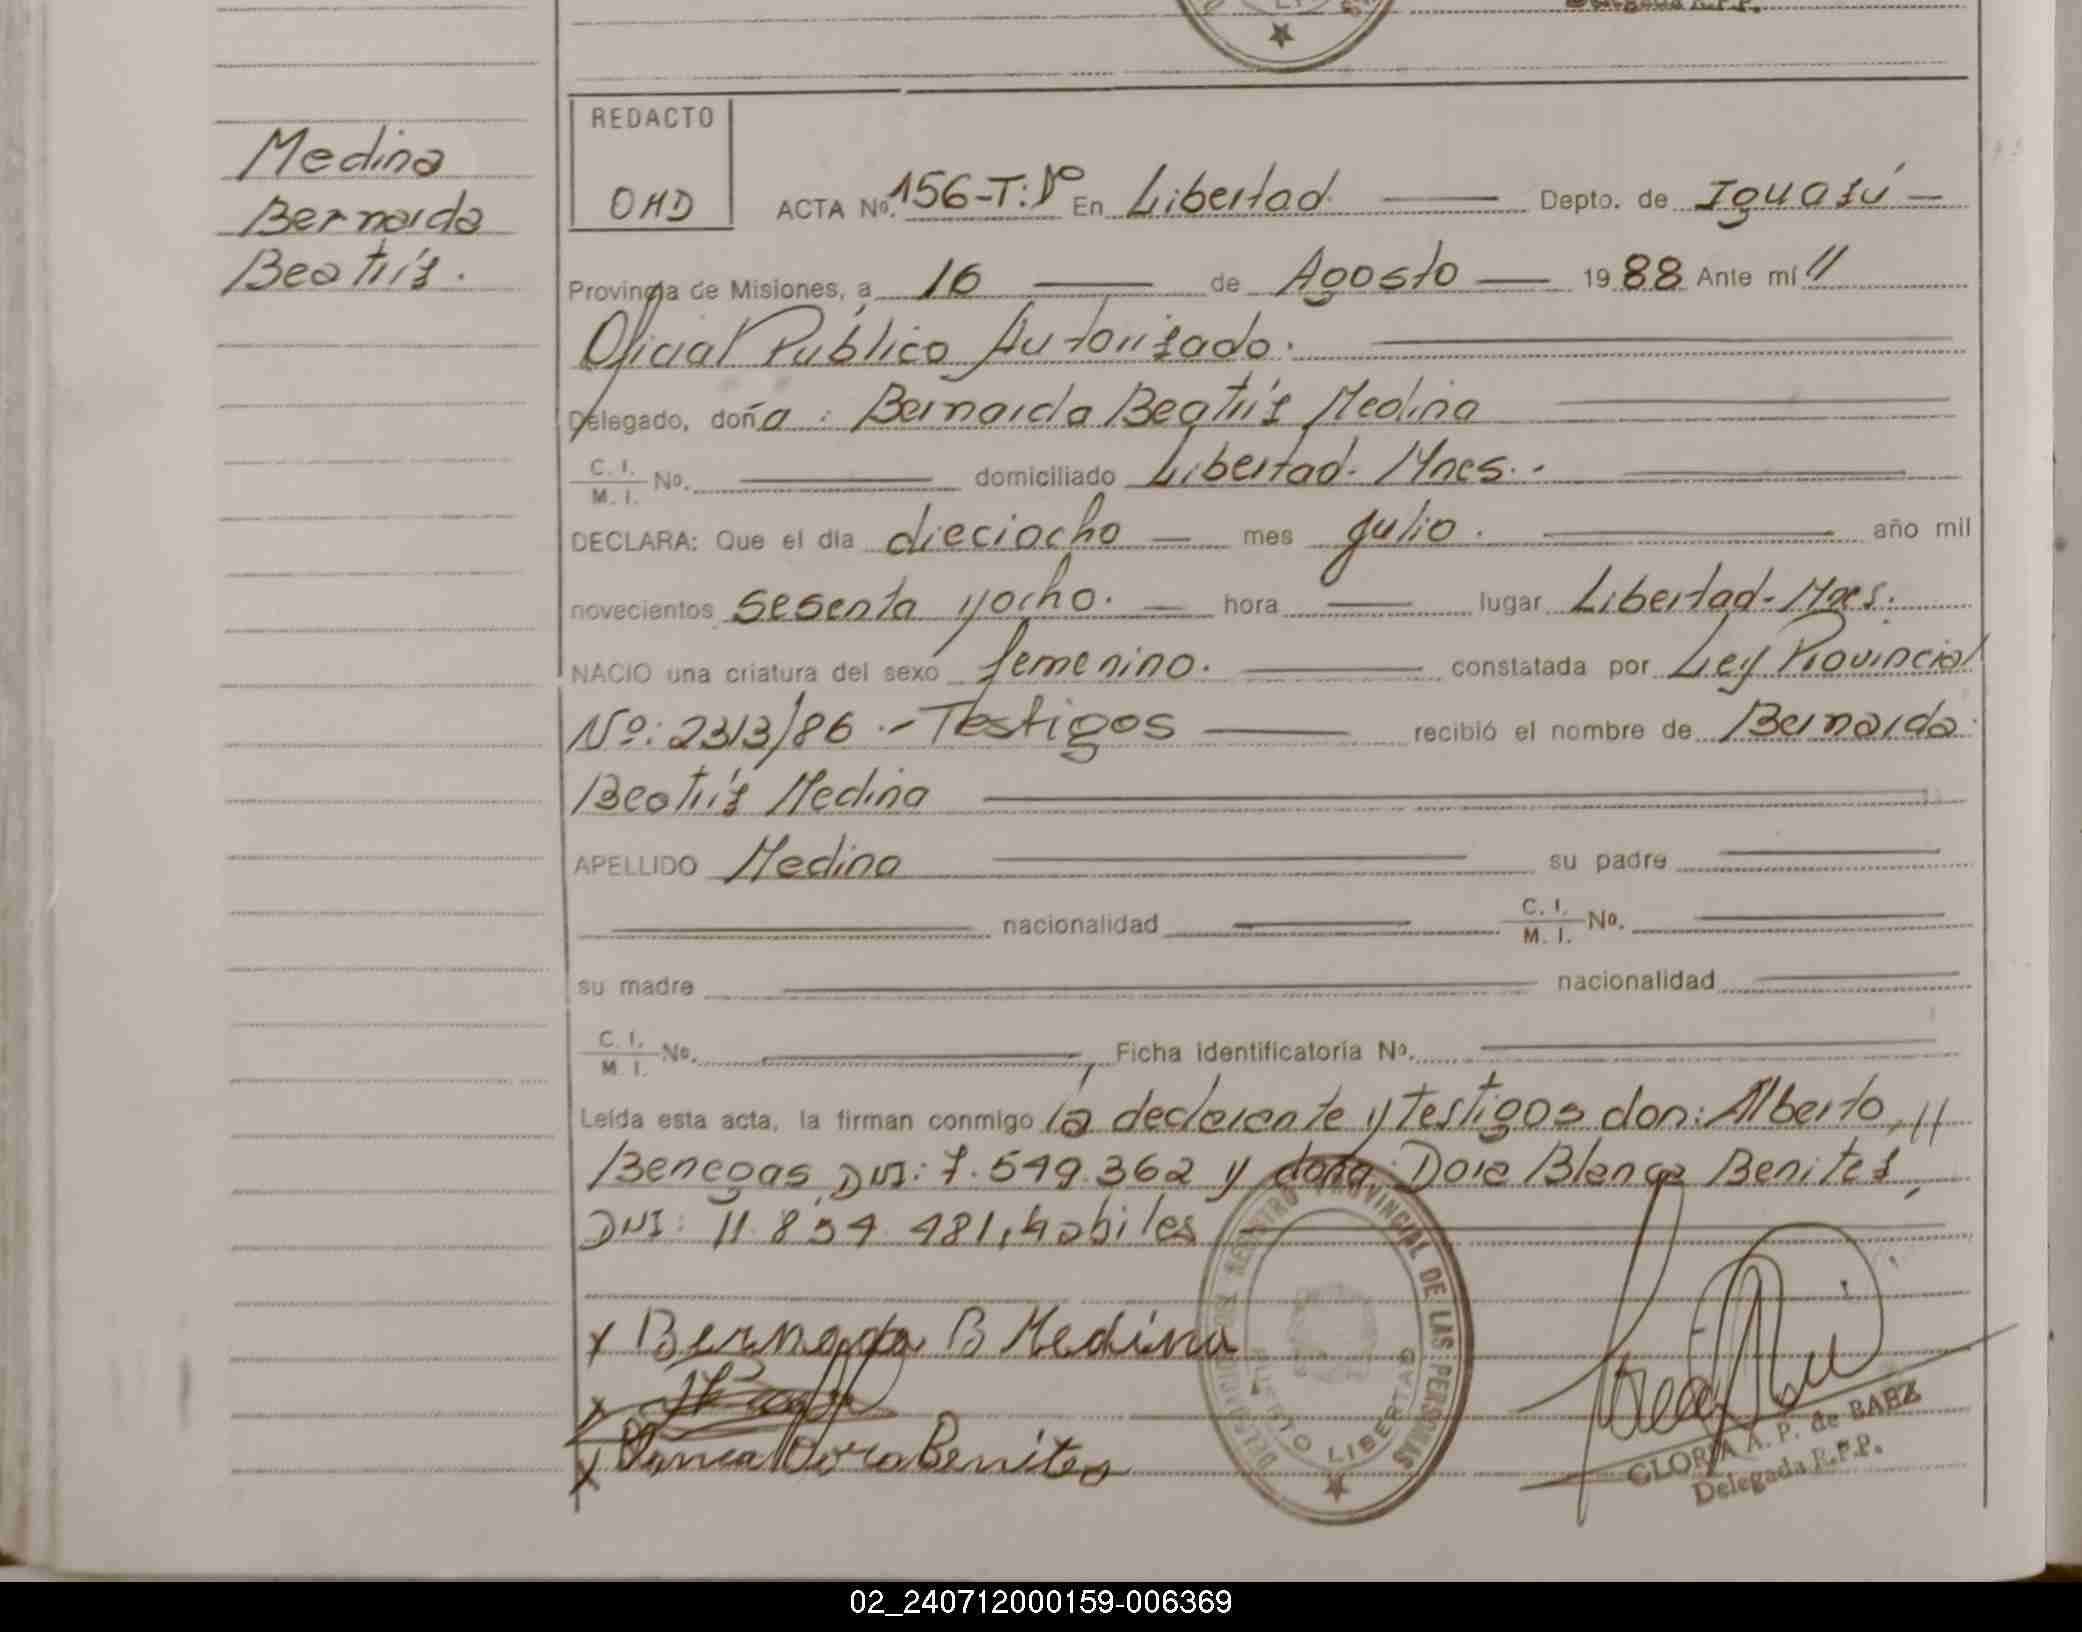 Medina
Bernarda
Beatríz.
REDACTO
OHD
ACTA Nº. 156-T:Iº En Libertad Depto. de Iguazú
Provincia de Misiones, a 16 de Agosto 1988 Ante mí //
Oficial Público Autorizado.
Delegado, doña: Bernarda Beatríz Medina
C. I. / M. I. Nº. domiciliado Libertad- Mnes.-
DECLARA: Que el día dieciocho mes julio. año mil
novecientos sesenta y ocho. hora lugar Libertad-Mnes.
NACIO una criatura del sexo femenino. constatada por Ley Provincial
Nº: 2313/86.- Testigos recibió el nombre de Bernarda
Beatríz Medina
APELLIDO Medina su padre
nacionalidad C. I. / M. I. Nº.
su madre nacionalidad
C. I. / M. I. Nº. Ficha identificatoria Nº.
Leída esta acta, la firman conmigo la declarante y testigos don: Alberto, //
Benegas, DNI: 7.549.362 y doña: Dora Blanca Benitez,
DNI: 11.854.481, hábiles
x Bernarda B Medina
x
x Blanca Dora Benitez
REGISTRO PROVINCIAL DE LAS PERSONAS
PUERTO LIBERTAD
GLORIA A. P. de BAEZ
Delegada R.P.P.
02_240712000159-006369